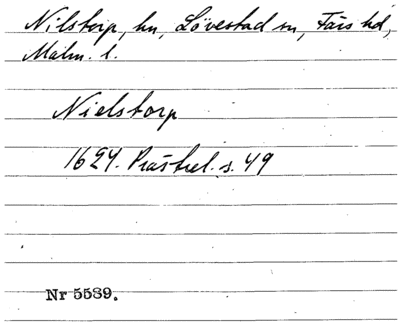 Nilstorp, hn, Lövestad sn, Färs hd,
Malm. l.
Nielstorp
1624. Prästrel. s. 49
Nr 5539.